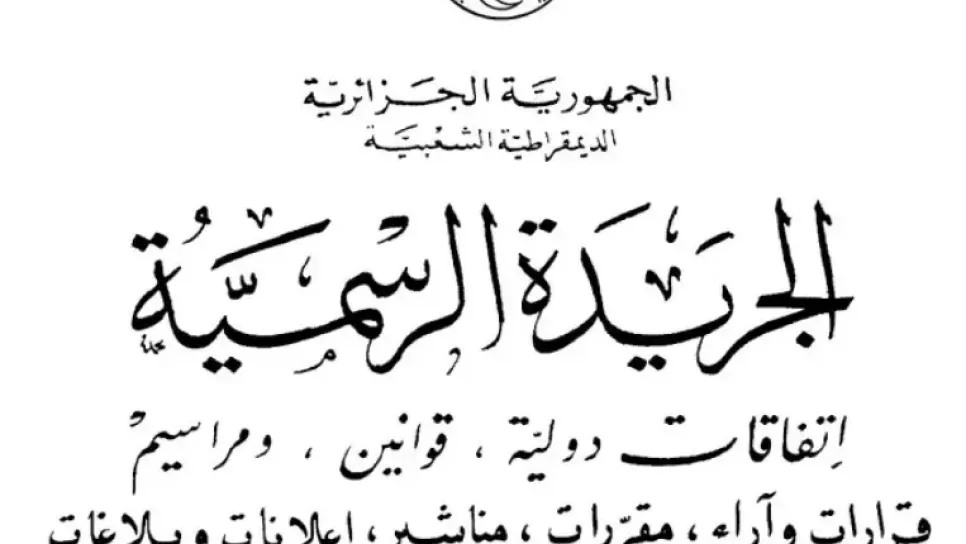 الجمهوريَّة الجَزائريّة
الديمقراطيّة الشعْبيَّة
الجريدَة الرسْميَّةُ
إتفاقات دوليّة ، قوانين ، ومراسيمْ
قرارات وآراء ، مقرّرات ، مناشير، إعلانات وبلاغات